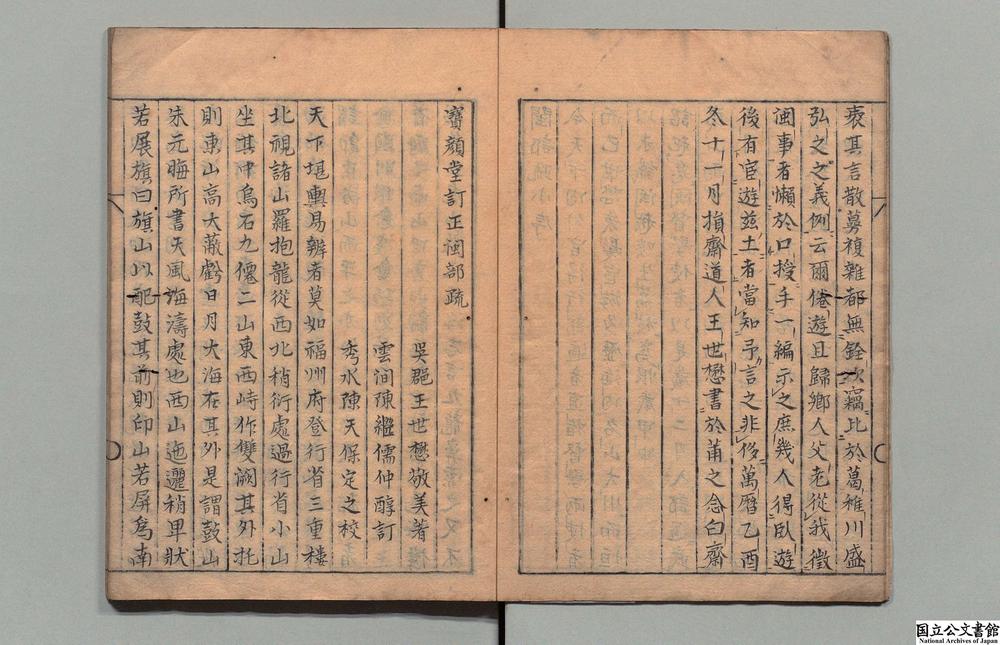 裒其言散蕚複雜都無銓次竊比於葛稚川盛
弘之之義例云爾倦遊且歸鄉人父老從我徵
閩事者懶於口授手一編示之庶幾人得臥遊
後有宦遊兹土者當知予言之非侈萬曆乙酉
冬十一月損齋道人王世懋書於莆之念白齋
寶顏堂訂正閩部疏
吳郡王世懋敬美著
雲間陳繼儒仲醇訂
秀水陳天保定之校
天下堪輿易辨者莫如福州府登行省三重樓
北視諸山羅抱龍從西北稍衍處過行省小山
坐其中烏石九僊二山東西峙作雙闕其外托
則東山高大蔽虧日月大海在其外是謂鼓山
朱元晦所書天風海濤處也西山迤邐稍卑狀
若展旗曰旗山以配鼓其前則印山若屏爲南
国立公文書館
National Archives of Japan